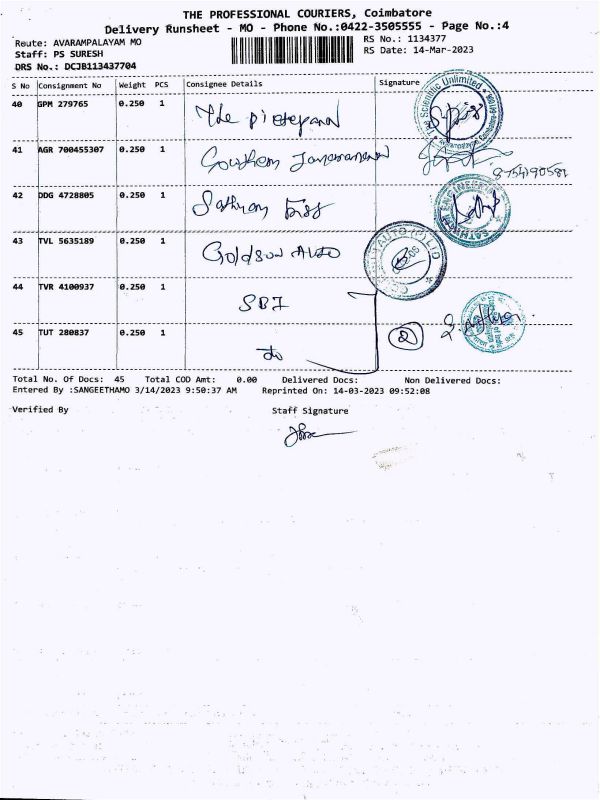 THE PROFESSIONAL COURIERS, Coimbatore
Delivery Runsheet - MO - Phone No.:0422-3505555 - Page No.:4
Route: AVARAMPALAYAM MO
RS No.: 1134377
Staff: PS SURESH
RS Date: 14-Mar-2023
DRS No.: DCJB113437704
S No Consignment No Weight PCS Consignee Details Signature
40 GPM 279765 0.250 1 The
The Scientific Unlimited
41 AGR 700455307 0.250 1 Southern
9754190581
42 DDG 4728805 0.250 1 Sathyam
43 TVL 5635189 0.250 1 Goldson Auto
44 TVR 4100937 0.250 1 SBI
45 TUT 280837 0.250 1 do 2
Total No. Of Docs: 45 Total COD Amt: 0.00 Delivered Docs: Non Delivered Docs:
Entered By :SANGEETHAMO 3/14/2023 9:50:37 AM Reprinted On: 14-03-2023 09:52:08
Verified By Staff Signature